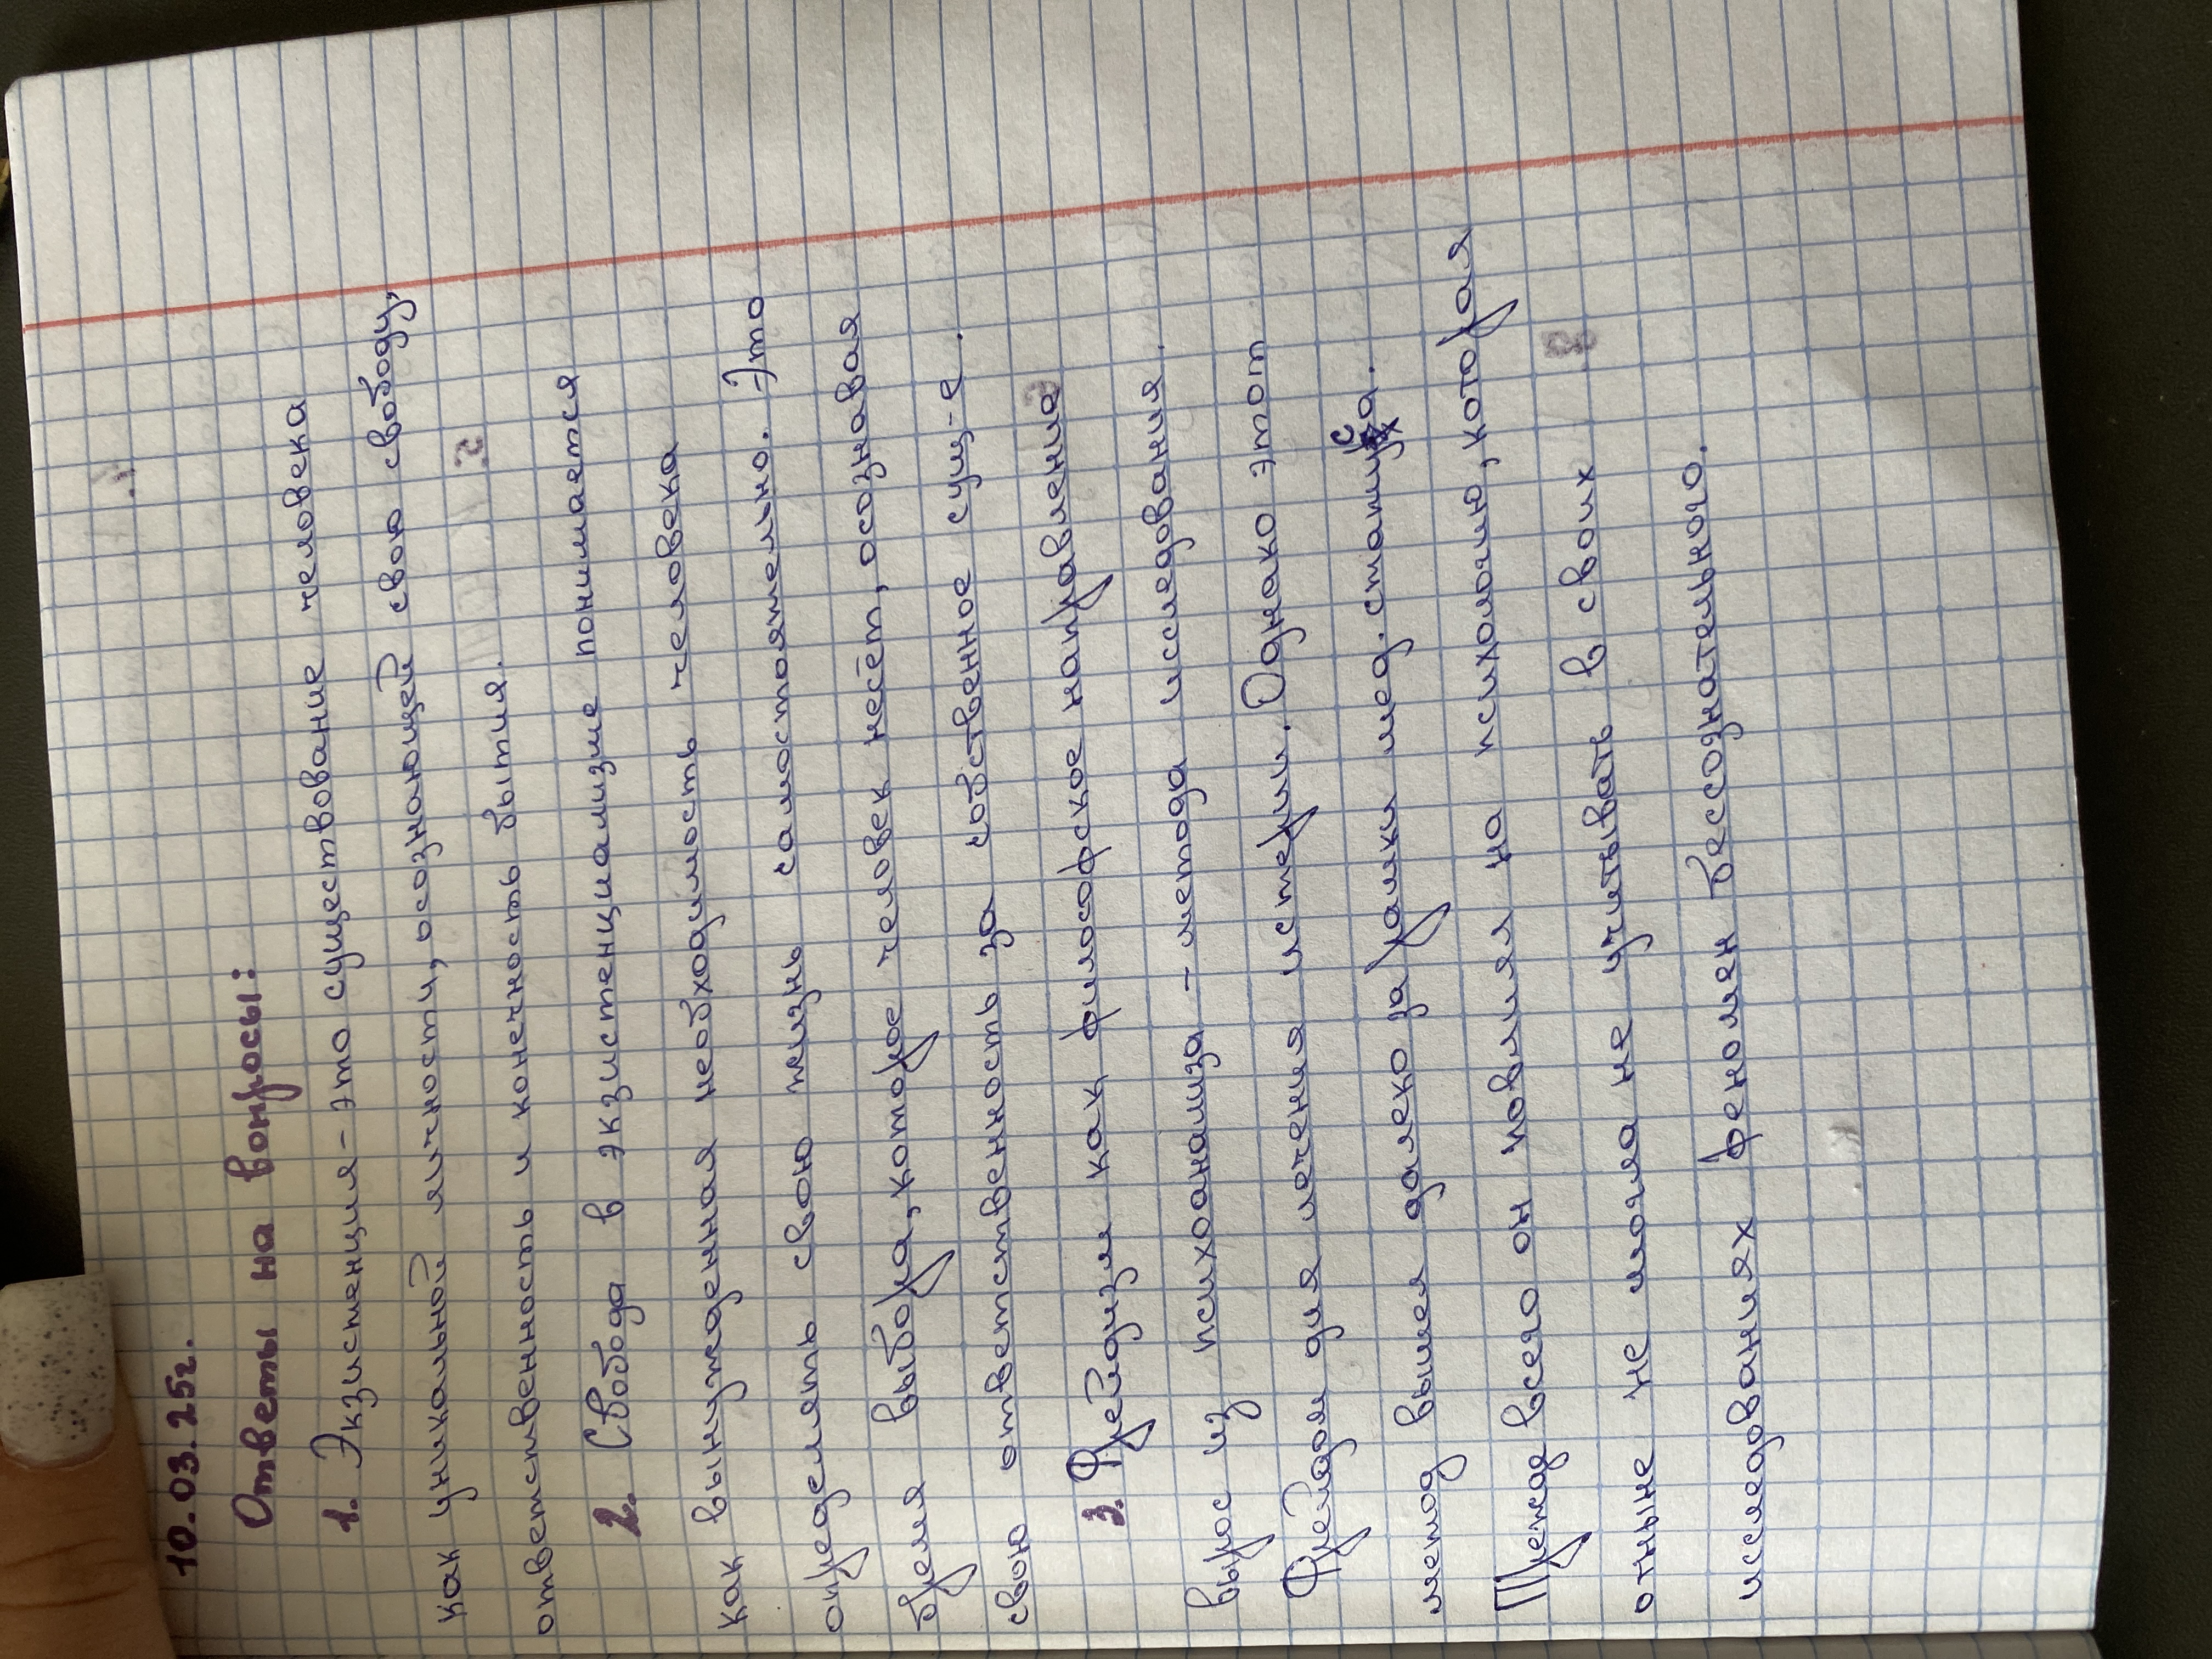 10.03.25г.
Ответы на вопросы:
1. Экзистенция - это существование человека
как уникальной личности, осознающей свою свободу,
ответственность и конечность бытия.
2. Свобода в экзистенциализме понимается
как вынужденная необходимость человека
определять свою жизнь самостоятельно. Это
бремя выбора, которое человек несёт, осознавая
свою ответственность за собственное сущ-е.
3. Фрейдизм как философское направление
вырос из психоанализа - метода исследования.
Фрейдом для лечения истерии. Однако этот
метод вышел далеко за рамки мед. статуса.
Прежде всего он повлиял на психологию, которая
отныне не могла не учитывать в своих
исследованиях феномен бессознательного.